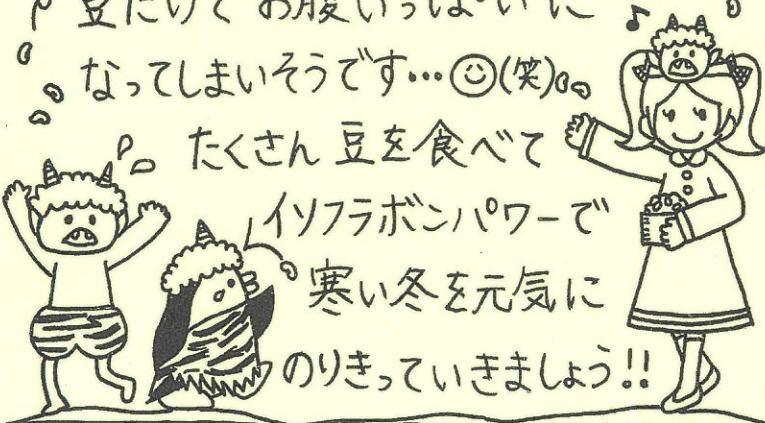 豆だけで お腹いっぱいに
なってしまいそうです…☺(笑)
たくさん 豆を食べて
イソフラボンパワーで
寒い冬を元気に
のりきっていきましょう!!